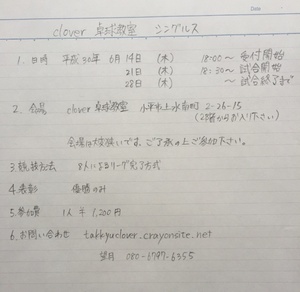 Date
clover 卓球教室 シングルス
1. 日時 平成30年 6月14日 (木) 18:00〜 受付開始
21日 (木) 18:30〜 試合開始
28日 (木) 〜試合終了まで
2. 会場 clover 卓球教室 小平市上水南町 2-26-15
(2階からお入り下さい)
会場は大変狭いです。ご了承の上ご参加下さい。
3. 競技方法 8人によるリーグ完了方式
4. 表彰 優勝のみ
5. 参加費 1人 ¥1,200円
6. お問い合わせ takkyuclover.crayonsite.net
望月 080-6797-6355